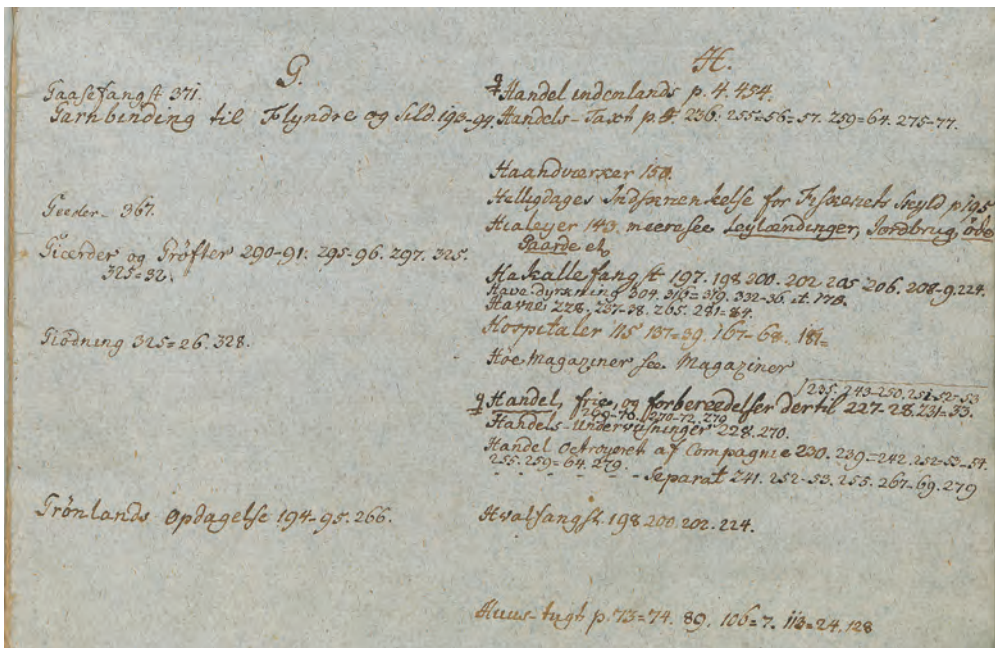 G.
Gaasefangst 371.
Garnbinding til Flyndre og Sild. 193-94.
Geeder - 367.
Giærder og Grøfter 290-91. 295-96. 297. 325.
325=32.
Giödning 325=26. 328.
Grönlands Opdagelse 194-95. 266.
H.
Handel indenlands p. 4. 454.
Handels-Taxt p. 236. 255=56=57. 259=64. 275-77.
Haandværker 150.
Helligdages Indskrænkelse for Fiskeriets skyld p. 195
Hialeyer 143. meere see Leylændinger, Jordbrug, øde
Gaarde etc
Hakallefangst 197. 198. 200. 202. 205 206. 208-9. 224.
Have-dyrkning 304. 316=319. 332-36. it. 178.
Havne 228. 237-38. 265. 281=84.
Hospitaler 115 137=39. 167-68. 181=
Hoe Magaziner see Magaziner
235. 243-250. 251-52-53
Handel, frie, og forberedelser dertil 227-28. 231=33.
269-70. 270-72. 279
Handels-Underviisninger 228. 270.
Handel Octroyeret af Compagnie 230. 239=242. 252-53-54.
255. 259=64. 279.
- - - - - Separat 241. 252-53. 255. 267-69. 279
Hvalfangst. 198 200. 202. 224.
Huus-tugt p. 73=74. 89. 106=7. 113=24. 128